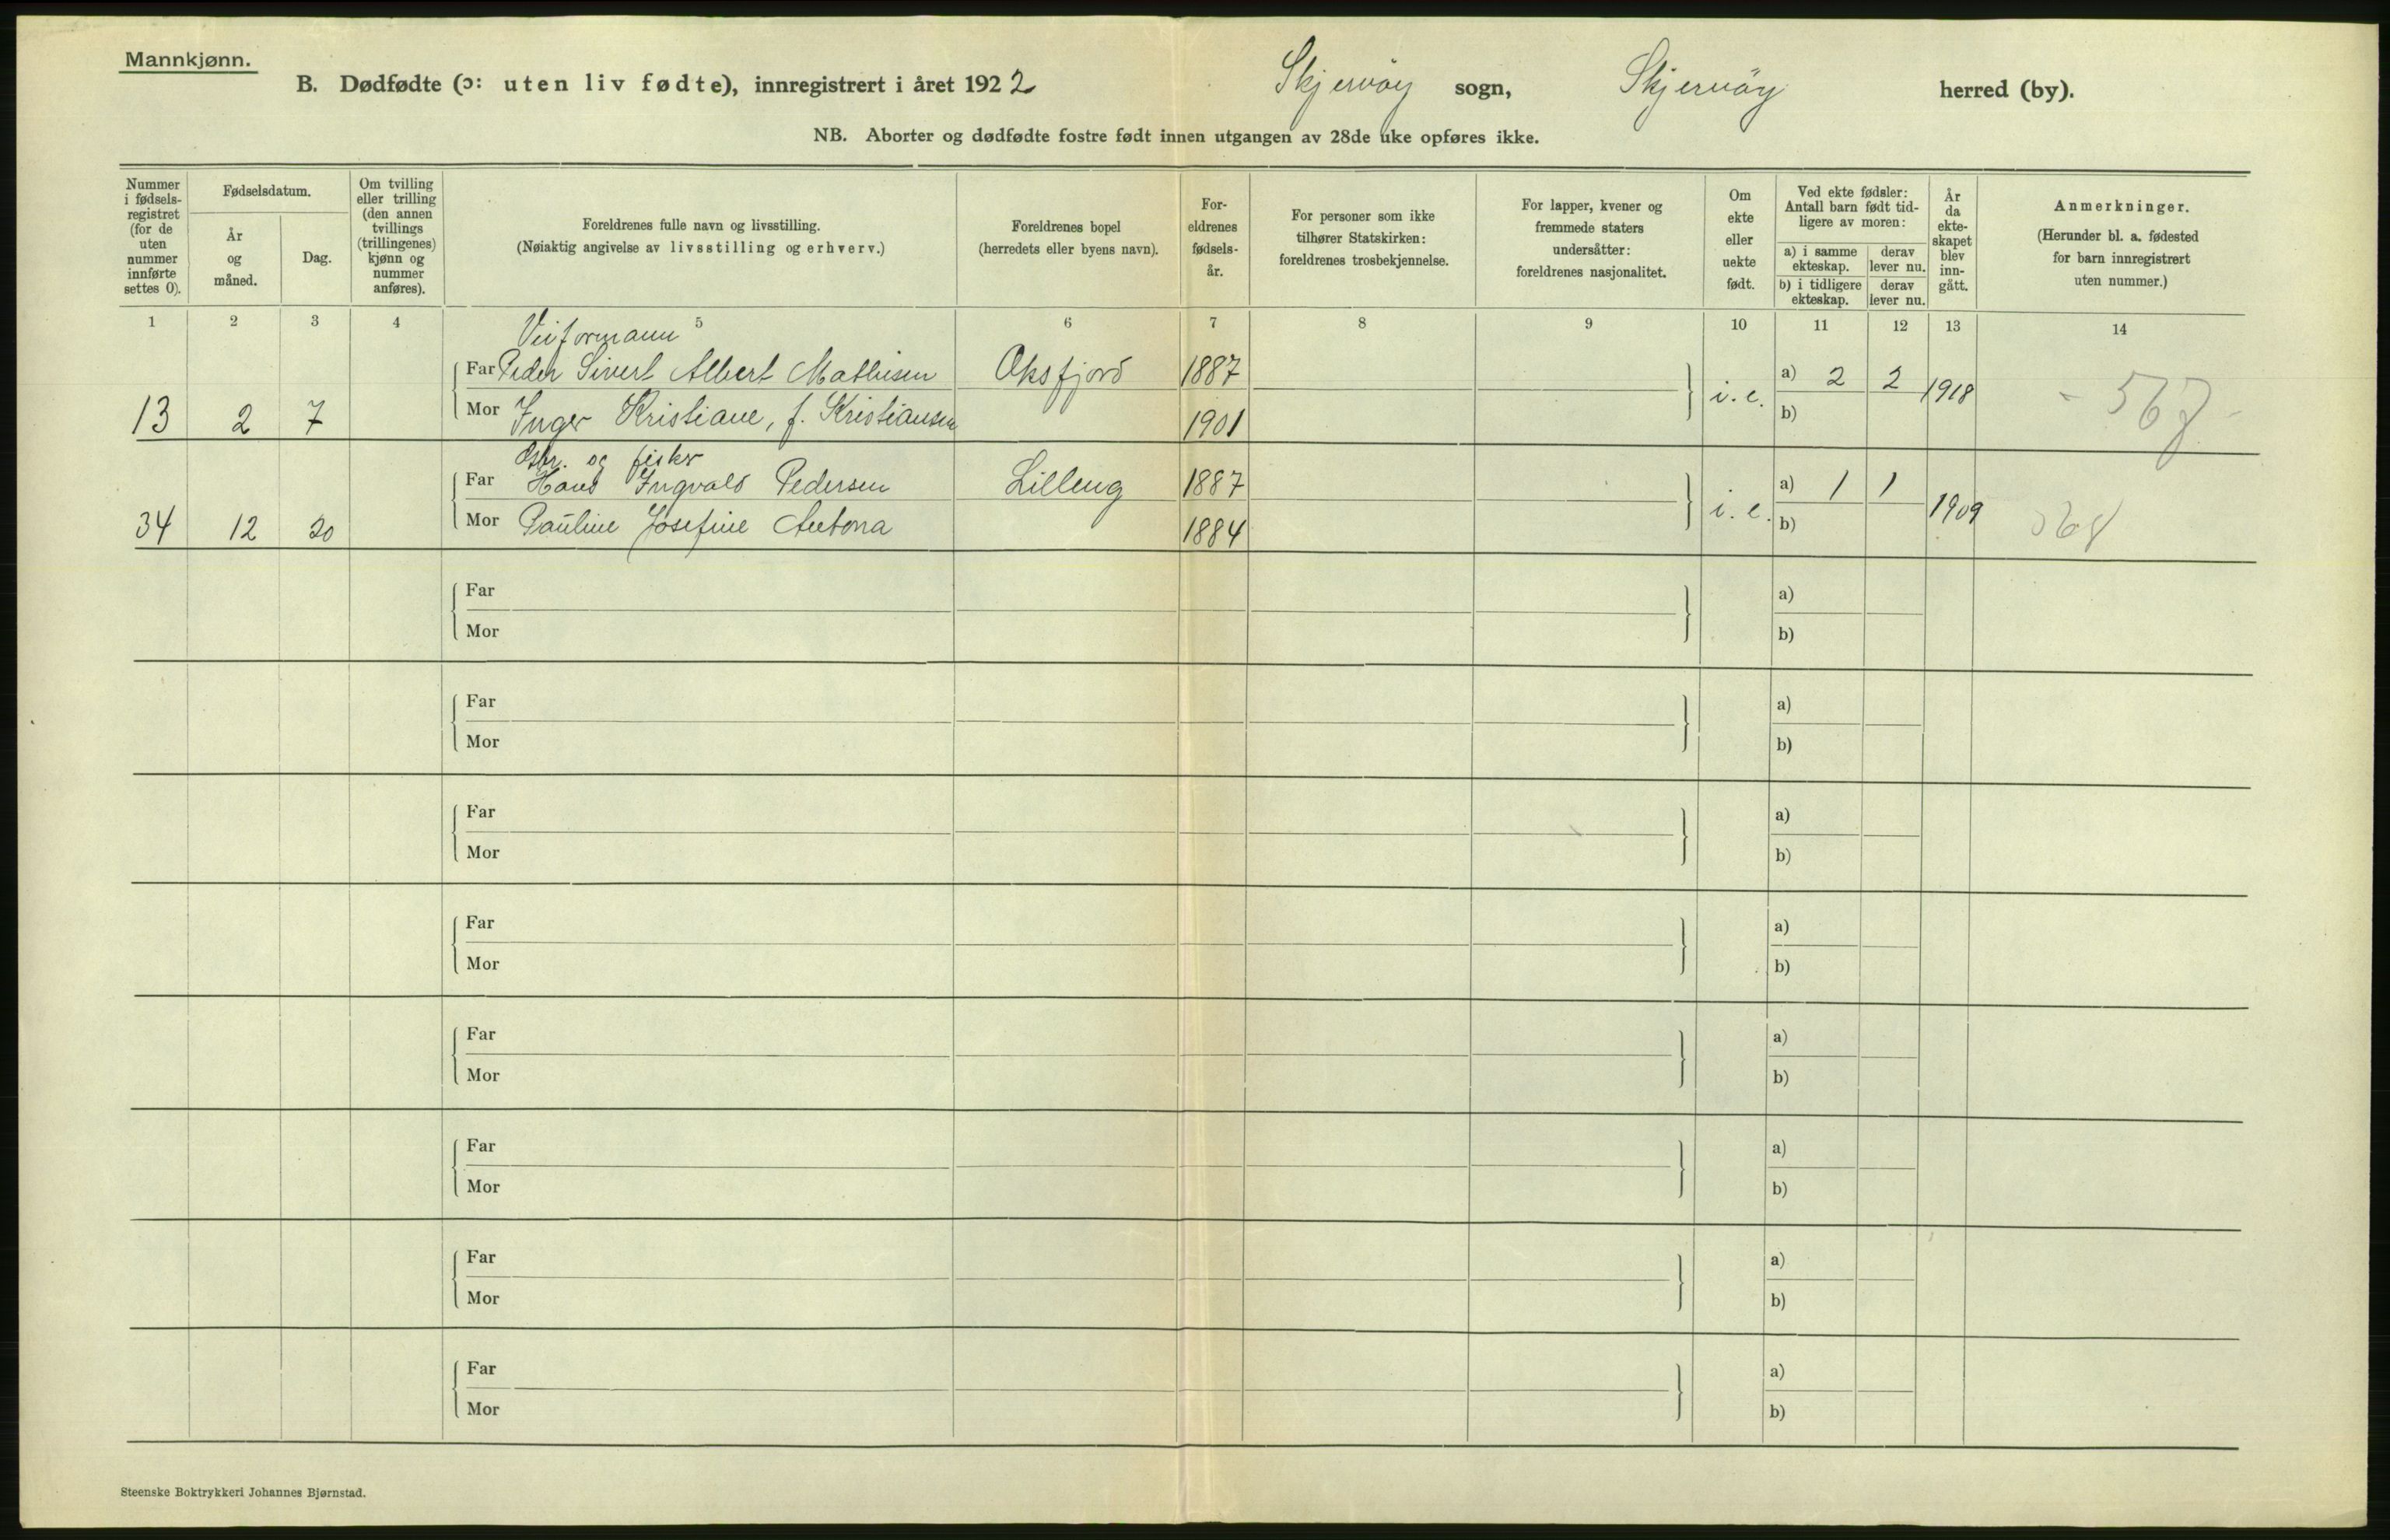 Mannkjønn.
B. Dødfødte (ɔ: uten liv fødte), innregistrert i året 1922 Skjervöy sogn, Skjervöy herred (by).
NB. Aborter og dødfødte fostre født innen utgangen av 28de uke opføres ikke.
Nummer i fødsels-registret (for de uten nummer innførte settes 0).
Fødselsdatum.
År og måned.
Dag.
Om tvilling eller trilling (den annen tvillings (trillingenes) kjønn og nummer anføres).
Foreldrenes fulle navn og livsstilling.
(Nøiaktig angivelse av livsstilling og erhverv.)
Foreldrenes bopel
(herredets eller byens navn).
For-eldrenes fødsels-år.
For personer som ikke tilhører Statskirken: foreldrenes trosbekjennelse.
For lapper, kvener og fremmede staters undersåtter: foreldrenes nasjonalitet.
Om ekte eller uekte født.
Ved ekte fødsler:
Antall barn født tid-ligere av moren:
a) i samme ekteskap.
derav lever nu.
b) i tidligere ekteskap.
derav lever nu.
År da ekte-skapet blev inn-gått.
Anmerkninger.
(Herunder bl. a. fødested for barn innregistrert uten nummer.)
1 2 3 4 5 6 7 8 9 10 11 12 13 14
Veiformann
Far Peder Sivert Albert Mathisen Oksfjord 1887 a) 2 2
13 2 7 Mor Inger Kristiane, f. Kristiansen 1901 i. e. b) 1918 567
Gbr. og fisker
Far Hans Ingvald Pedersen Lilleng 1887 a) 1 1
34 12 20 Mor Pauline Josefine Antona 1884 i. e. b) 1909 568
Far a)
Mor b)
Far a)
Mor b)
Far a)
Mor b)
Far a)
Mor b)
Far a)
Mor b)
Far a)
Mor b)
Far a)
Mor b)
Far a)
Mor b)
Steenske Boktrykkeri Johannes Bjørnstad.